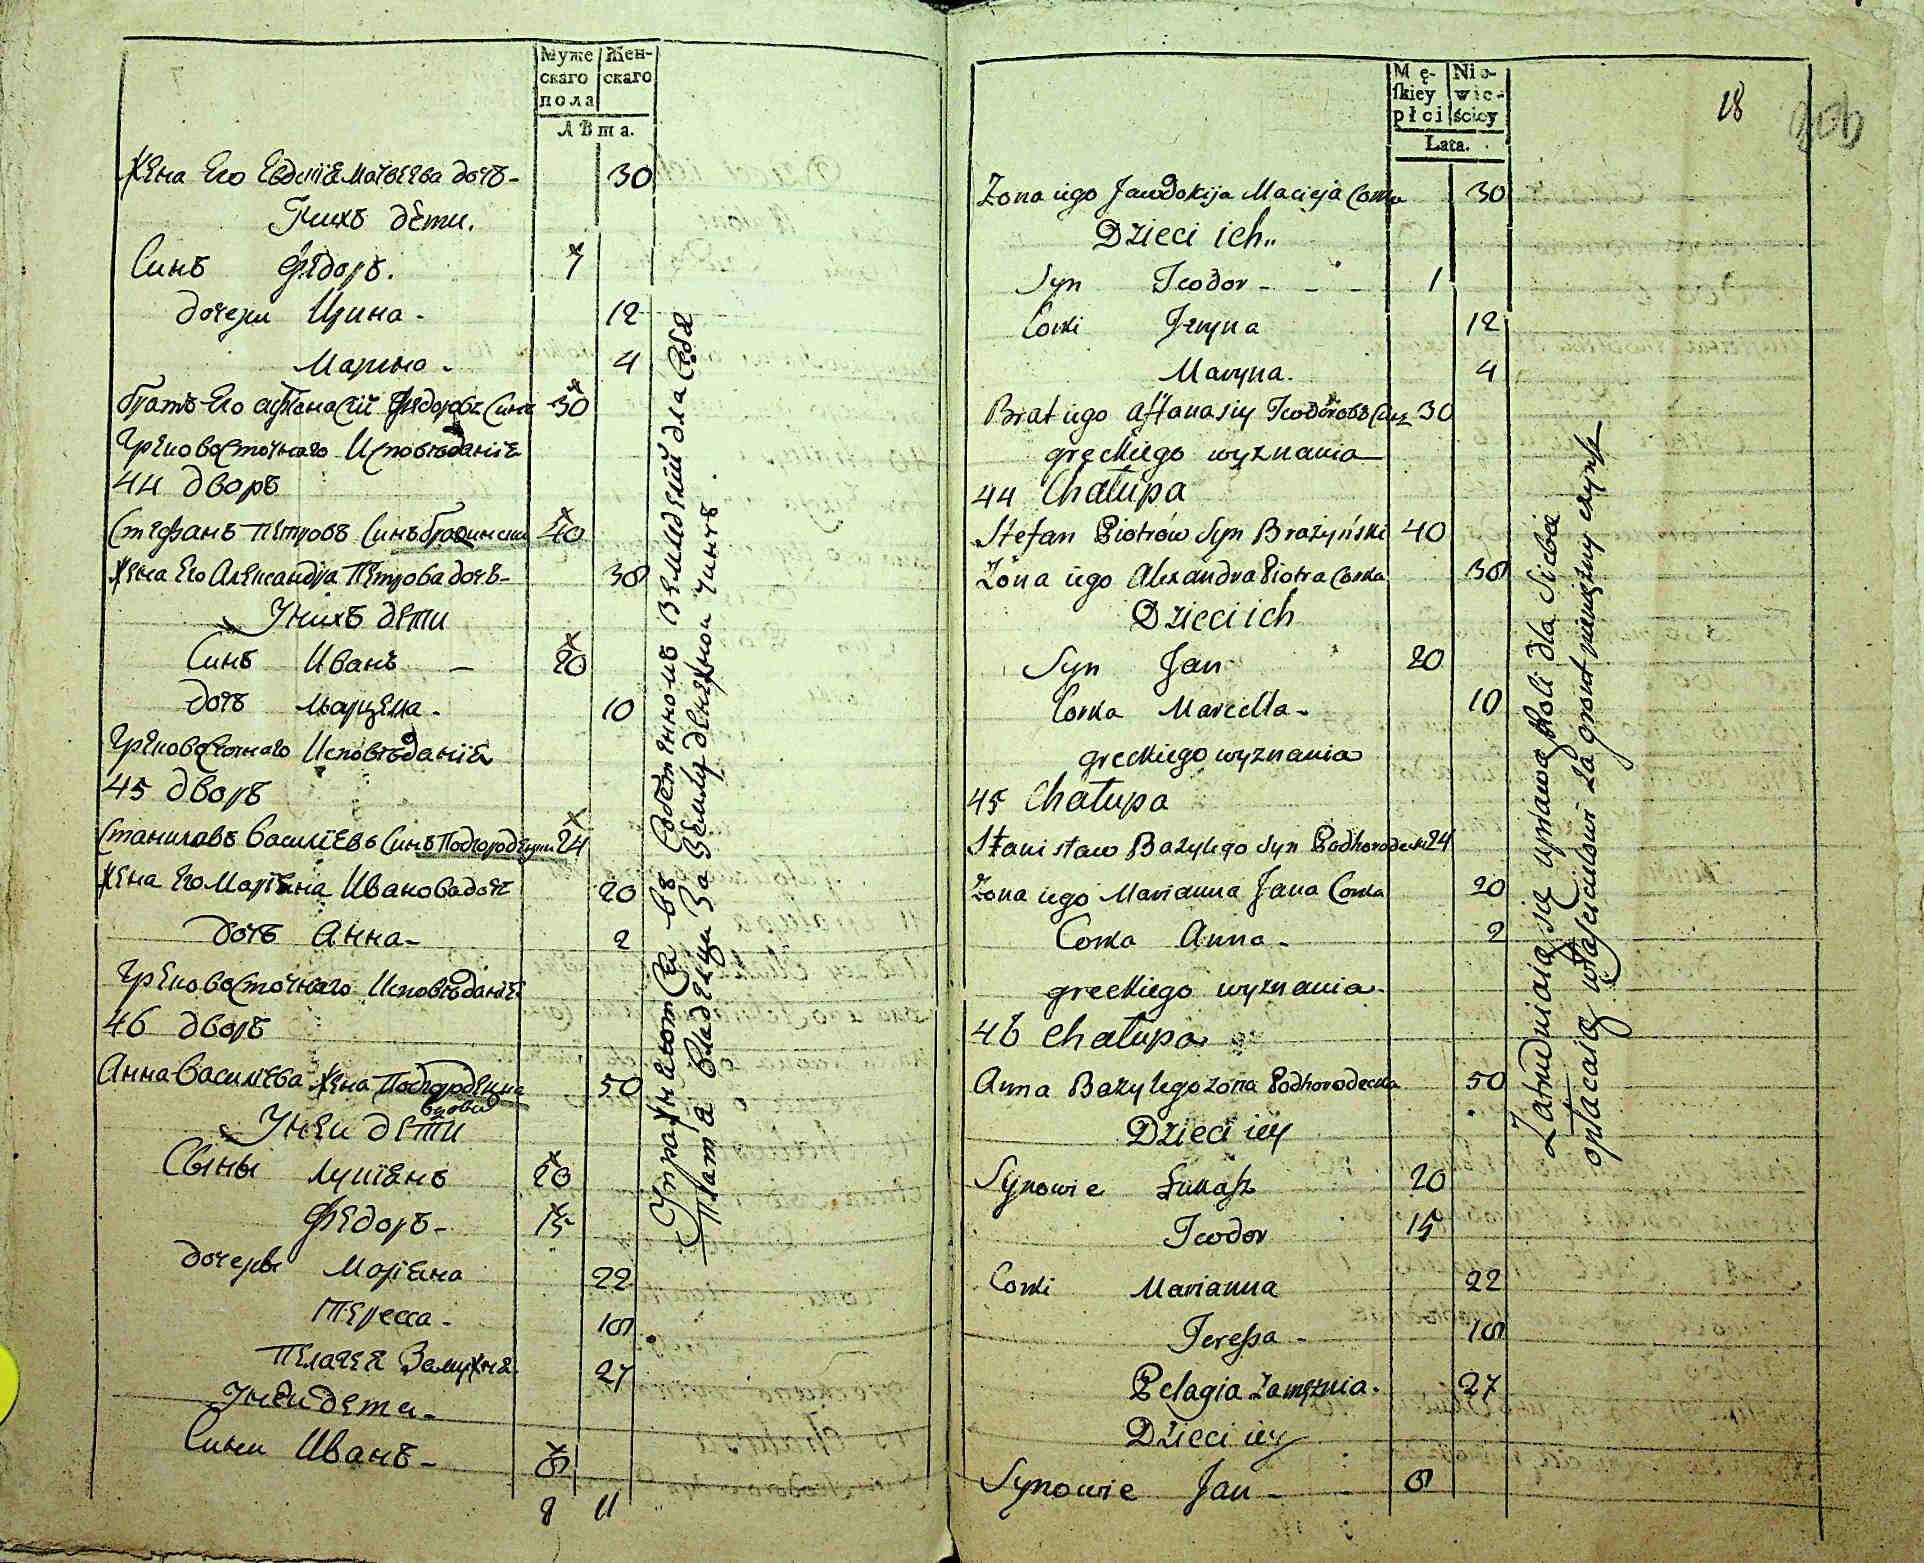 Муже Жен-
скаго скаго
пола
Лѣта.
Жена Его Евдокіѣ Матвѣева дочь - 30
У нихъ дѣти.
Синъ Фѣдоръ. 1
дочери Ирина - 12
Марина - 4
братъ Его афанасій Фѣдоровъ Синъ 30
Грековосточнаго Исповѣданія
44 дворъ
Стефанъ Петровъ Синъ Бражински 40
Жена Его Александра Петрова дочь - 30
У нихъ дети
Синъ Иванъ - 20
дочь Марцела - 10
Грековосточнаго Исповѣданія
45 дворъ
Станиславъ Василіевъ Синъ Подгородецки 24
Жена Его Маріяна Иванова дочь 20
дочь Анна - 2
Грековосточнаго Исповѣданія
46 дворъ
Анна Василіева Жена Подгородецка 50
вдова
У неи дети
Сыны Лукіянъ 20
Федоръ - 15
дочери Маріяна 22
Тересса - 10
Пелагея Замужня 27
У неи дети -
Сини Иванъ - 8
8 11
Упражняются въ Собственномъ Земледелій для Себя
Плата владелцу За Землю денежной чиншъ.
18
Mę- Nie-
skiey wie-
płci ściey
Lata.
Zona iego Jawdokija Macieja Corka 30
Dzieci ich..
Syn Teodor - - - 1
Corki Jryna 12
Maryna. 4
Brat iego Affanasiy Teodorow Syn 30
greckiego wyznania
44 Chałupa
Stefan Piotrów Syn Brażyński 40
Zona iego Alexandra Piotra Corka 30
Dzieci ich
Syn Jan 20
Corka Marcella - 10
greckiego wyznania
45 Chałupa
Stanisław Bazylego Syn Podhorodecki 24
Zona iego Marianna Jana Corka 20
Corka Anna - 2
greckiego wyznania -
46 Chałupa
Anna Bazylego zona Podhorodecka 50
Dzieci iey
Synowie Łukasz 20
Teodor 15
Corki Marianna 22
Teressa - 10
Pelagia Zamężnia. 27
Dzieci iey
Synowie Jan - - 8
Zatrudniaią się uprawą Roli dla Siebie
opłacaią właścicielowi za gront pieniężny czynsz